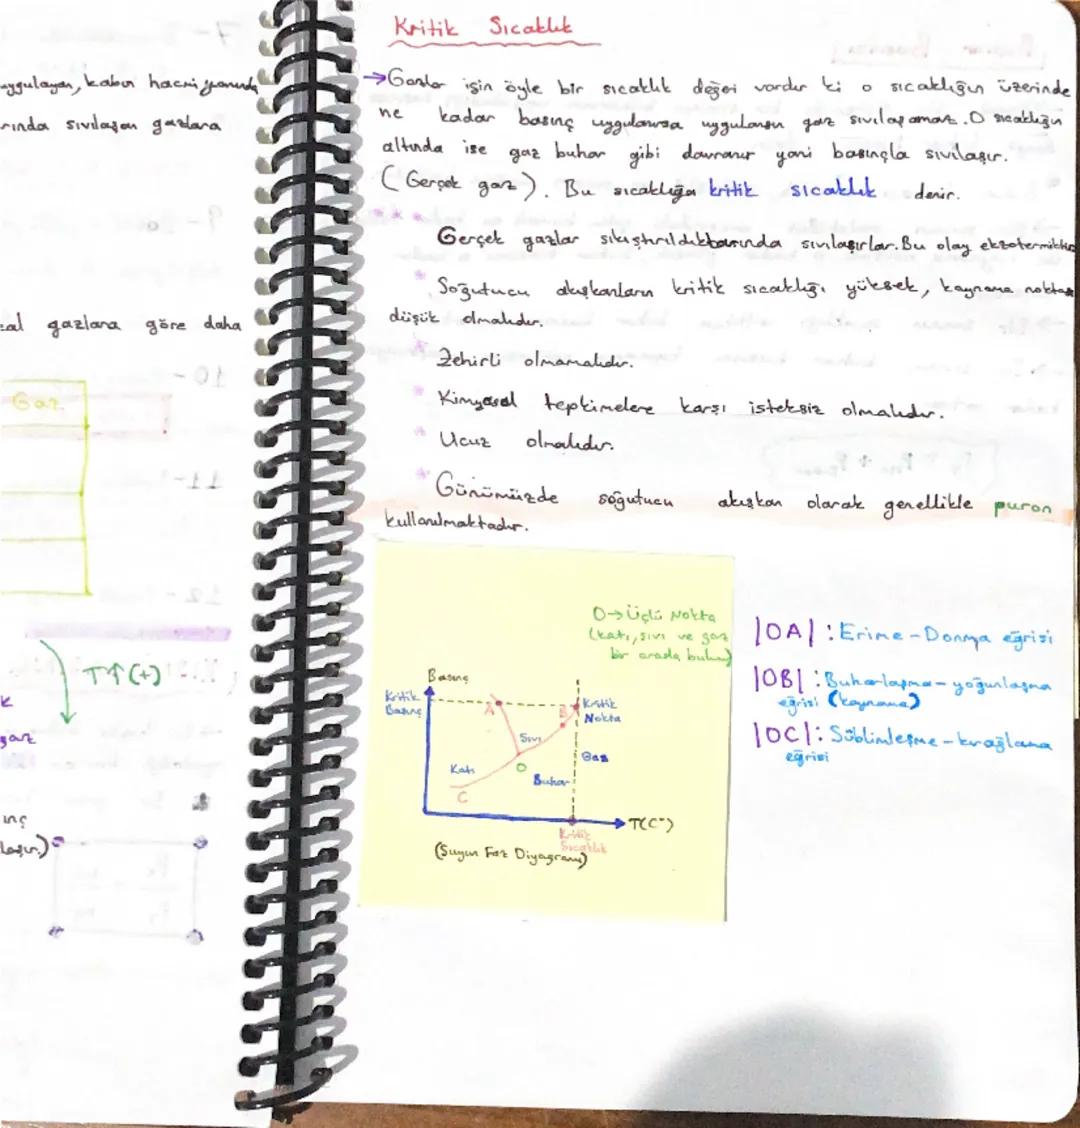 uygulayan, kabın hacmi yanında
rında sıvılaşan gazlara
al gazlara göre daha
Gaz
T↑(+)
k
gaz
ınç
laşır.)
Kritik Sıcaklık
→Gazlar için öyle bir sıcaklık değeri vardır ki o sıcaklığın üzerinde
ne kadar basınç uygulanırsa uygulansın gaz sıvılaşamaz. O sıcaklığın
altında ise gaz buhar gibi davranır yani basınçla sıvılaşır.
(Gerçek gaz). Bu sıcaklığa kritik sıcaklık denir.
* *
Gerçek gazlar sıkıştırıldıklarında sıvılaşırlar. Bu olay ekzotermiktir
* Soğutucu akışkanların kritik sıcaklığı yüksek, kaynama noktası
düşük olmalıdır.
* Zehirli olmamalıdır.
* Kimyasal tepkimelere karşı isteksiz olmalıdır.
* Ucuz olmalıdır.
* Günümüzde soğutucu akışkan olarak genellikle puron
kullanılmaktadır.
O→Üçlü Nokta
(katı, sıvı ve gaz
bir arada bulun)
Basınç
Kritik
Basınç
A
B
Kritik
Nokta
Sıvı
Gaz
Katı
O
Buhar
C
T(C°)
Kritik
Sıcaklık
(Suyun Faz Diyagramı)
|OA| : Erime-Donma eğrisi
|OB| : Buharlaşma-yoğunlaşma
eğrisi (kaynama)
|OC| : Süblimleşme-kırağılaşma
eğrisi